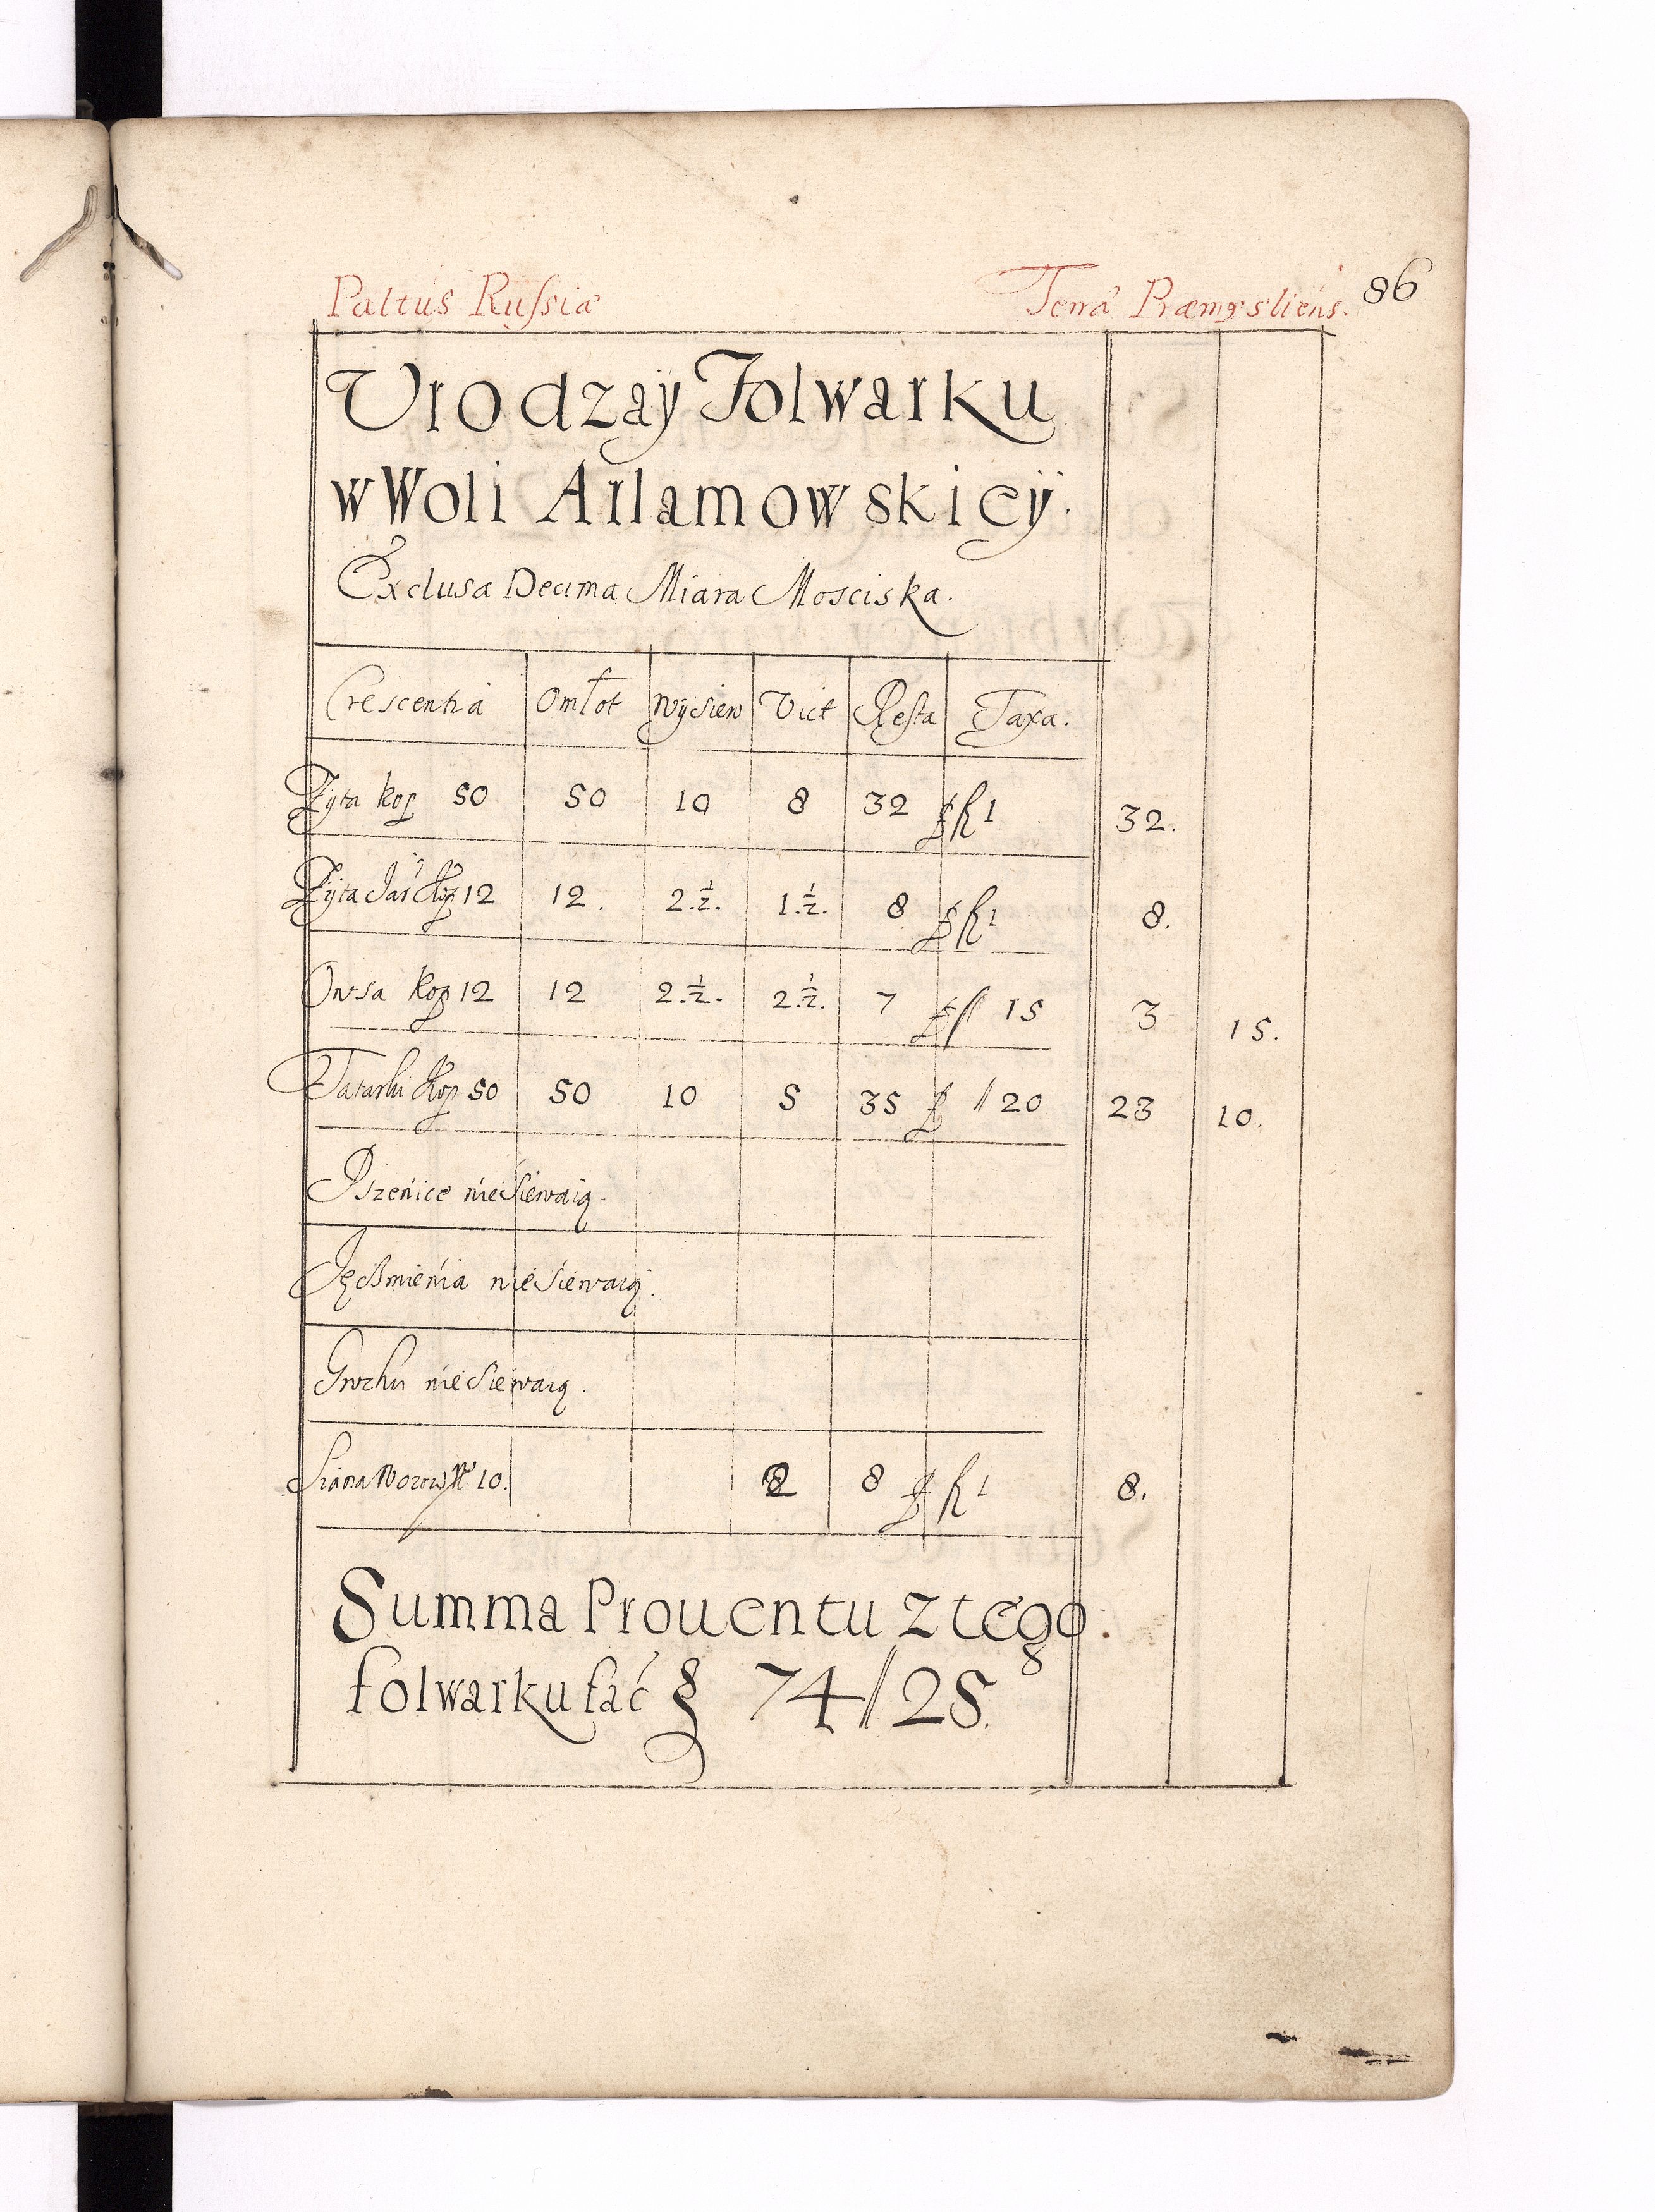 Paltus Russiæ Terra Præmysliens. 86
Urodzaÿ Folwarku
w Woli Arlamowskieÿ.
Exclusa Decima Miara Mosciska.
Crescentia Omłot Wÿsiew Vict Resta Taxa.
Zyta kop 50 50 10 8 32 fl 1 32.
Zÿta Jar kop 12 12. 2.½. 1.½. 8 fl 1 8.
Owsa kop 12 12 2.½. 2.½. 7 // 15 3 15.
Tatarki kop 50 50 10 5 35 // 20 23 10.
Pszenice nie siewaią.
Jęcżmienia nie siewaią.
Grochu nie siewaią.
Siana Wozow 10. 2 8 fl 1 8.
Summa Prouentu z tego
folwarku fać 74 // 25.